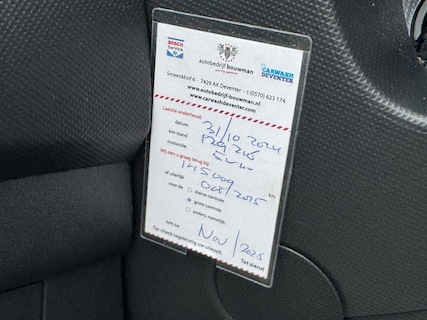 BOSCH
Service
autobedrijf bouwman
CARWASH
DEVENTER
Smeenkhof 6 - 7429 AX Deventer - t (0570) 623 174
www.autobedrijf-bouwman.nl
www.carwashdeventer.com
Laatste onderhoud:
datum 31/10 2024
km-stand 129 216
motorolie 5w
Wij zien u graag terug bij:
145000 km
of uiterlijk Oct/2025
voor de kleine controle
grote controle
anders, namelijk:
APK tot Nov/2025
Tip: check regelmatig uw oliepeil. Tot ziens!